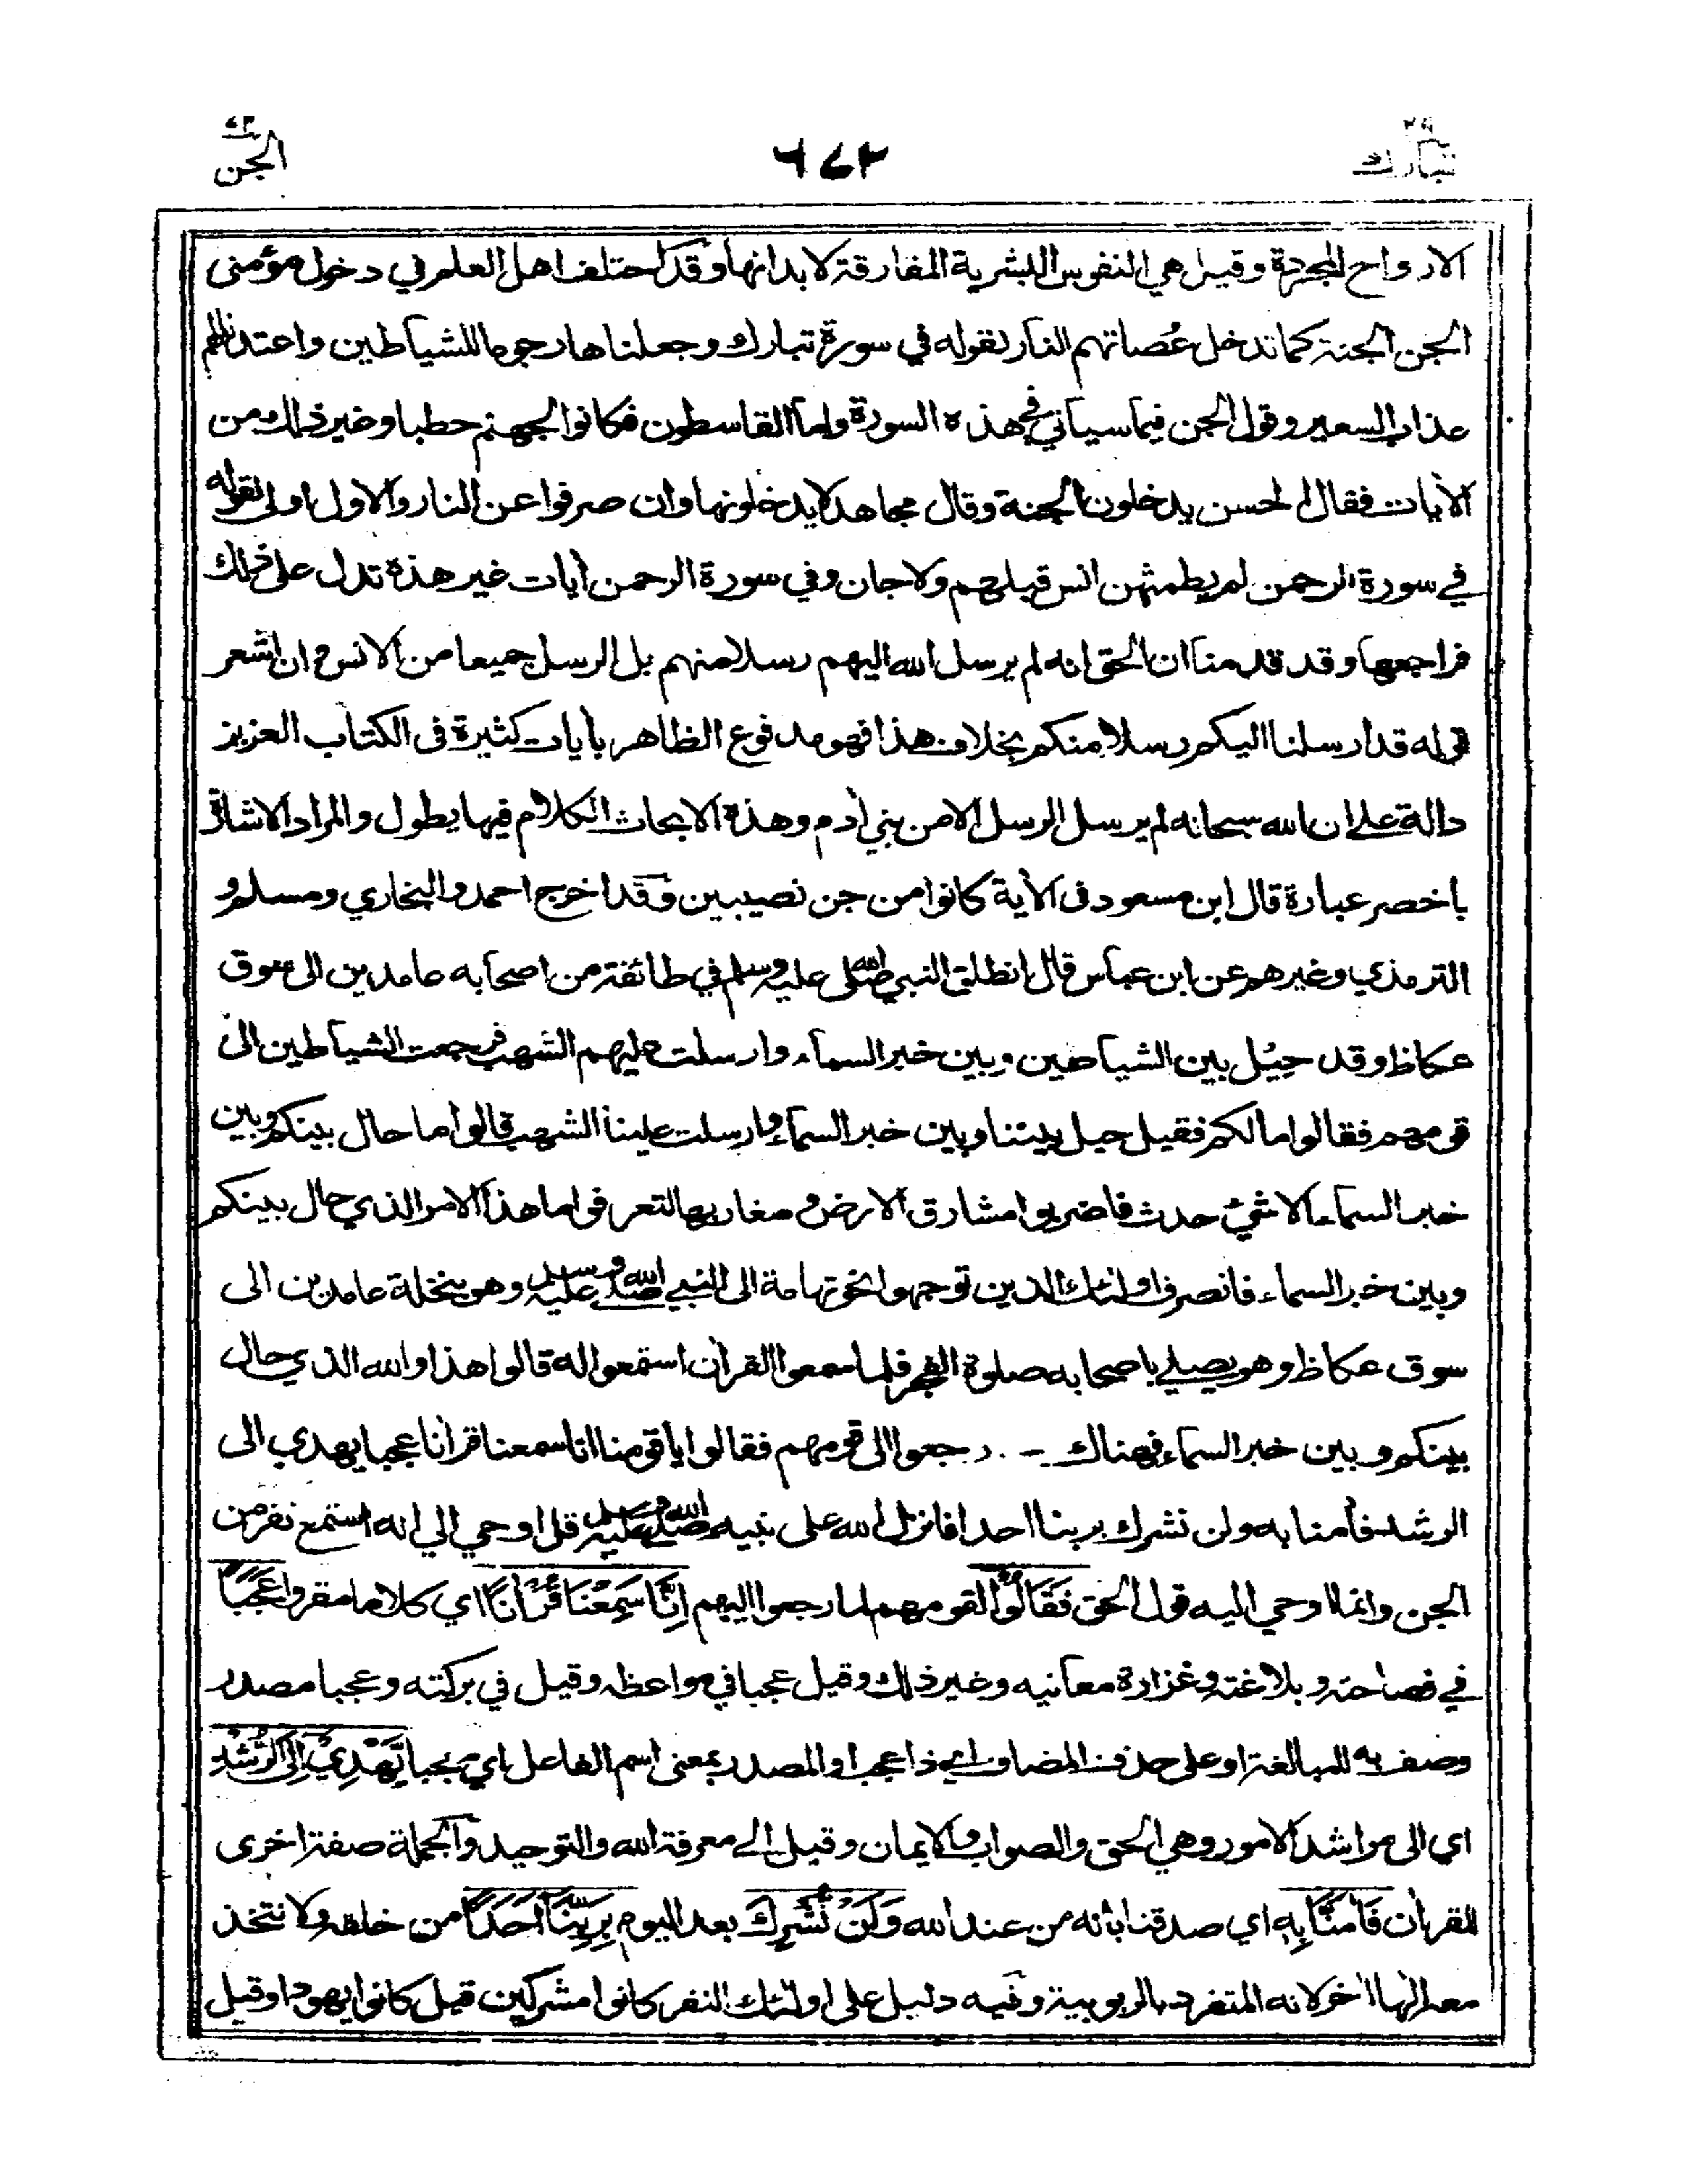 تبارك ٢٩
٦٧٢
الجن ٧٢
الارواح المجردة وقيل هي النفوس البشرية المفارقة لابدانها وقد اختلف اهل العلم في دخول مؤمني
الجن الجنة كما تدخل عُصاتهم النار لقوله في سورة تبارك وجعلناها رجوما للشياطين واعتدنا لهم
عذاب السعير وقول الجن فيما سياتي في هذه السورة واما القاسطون فكانوا لجهنم حطبا وغير ذلك من
الأيات فقال الحسن يدخلون الجنة وقال مجاهد لا يدخلونها وان صرفوا عن النار والاول اولى لقوله
في سورة الرحمن لم يطمثهن انس قبلهم ولا جان وفي سورة الرحمن أيات غير هذه تدل على ذلك
فراجعها وقد قدمنا ان الحق انه لم يرسل الله اليهم رسلا منهم بل الرسل جميعا من الانس وان اشعر
قوله قد ارسلنا اليكم رسلا منكم بخلاف هذا فهو مدفوع الظاهر بأيات كثيرة فى الكتاب العزيز
دالة على ان الله سبحانه لم يرسل الرسل الا من بني أدم وهذه الابحاث الكلام فيها يطول والمراد الاشارة
باخصر عبارة قال ابن مسعود فى الأية كانوا من جن نصيبين وقد اخرج احمد والبخاري ومسلم و
الترمذي وغيرهم عن ابن عباس قال انطلق النبي صلى الله عليه وسلم في طائفة من اصحابه عامدين الى سوق
عكاظ وقد حِيْل بين الشياطين وبين خبر السماء وارسلت عليهم الشهب فرجعت الشياطين الى
قومهم فقالوا مالكم فقيل حيل بيننا وبين خبر السماء وارسلت علينا الشهب قالوا ما حال بينكم وبين
خبر السماء الا شيء حدث فاضربوا مشارق الارض ومغاربها لتعرفوا ما هذا الامر الذي حال بينكم
وبين خبر السماء فانصرف اولئك الذين توجهوا نحو تهامة الى النبي صلى الله عليه وسلم وهو بنخلة عامدين الى
سوق عكاظ وهو يصلي باصحابه صلوة الفجر فلما سمعوا القرأن استمعوا له قالوا هذا والله الذي حال
بينكم وبين خبر السماء فهناك رجعوا الى قومهم فقالوا ياقومنا انا سمعنا قرأنا عجبا يهدي الى
الرشد فأمنا به ولن نشرك بربنا احدا فانزل الله على نبيه صلى الله عليه وسلم قل اوحي الي انه استمع نفر من
الجن وانما اوحي اليه قول الجن فَقَالُوْا لقومهم لما رجعوا اليهم اِنَّا سَمِعْنَا قُرْأنًا اي كلاما مقروا عَجَبًا
في فصاحته وبلاغته وغزارة معانيه وغير ذلك وقيل عجبا في مواعظه وقيل في بركته وعجبا مصدر
وصف به للمبالغة او على حذف المضاف اي ذا عجب او المصدر بمعنى اسم الفاعل اي معجبا يَّهْدِيْ اِلَى الرُّشْدِ
اي الى مراشد الامور وهي الحق والصواب والايمان وقيل الى معرفة الله والتوحيد والجملة صفة اخرى
للقرأن فَأمَنَّا بِهٖ اي صدقنا بأنه من عند الله وَلَنْ نُّشْرِكَ بعد اليوم بِرَبِّنَا اَحَدًا من خلقه ولا نتخذ
معه الها أخر لانه المتفرد بالربوبية وفيه دليل على اولئك النفر كانوا مشركين قيل كانوا يهودا وقيل